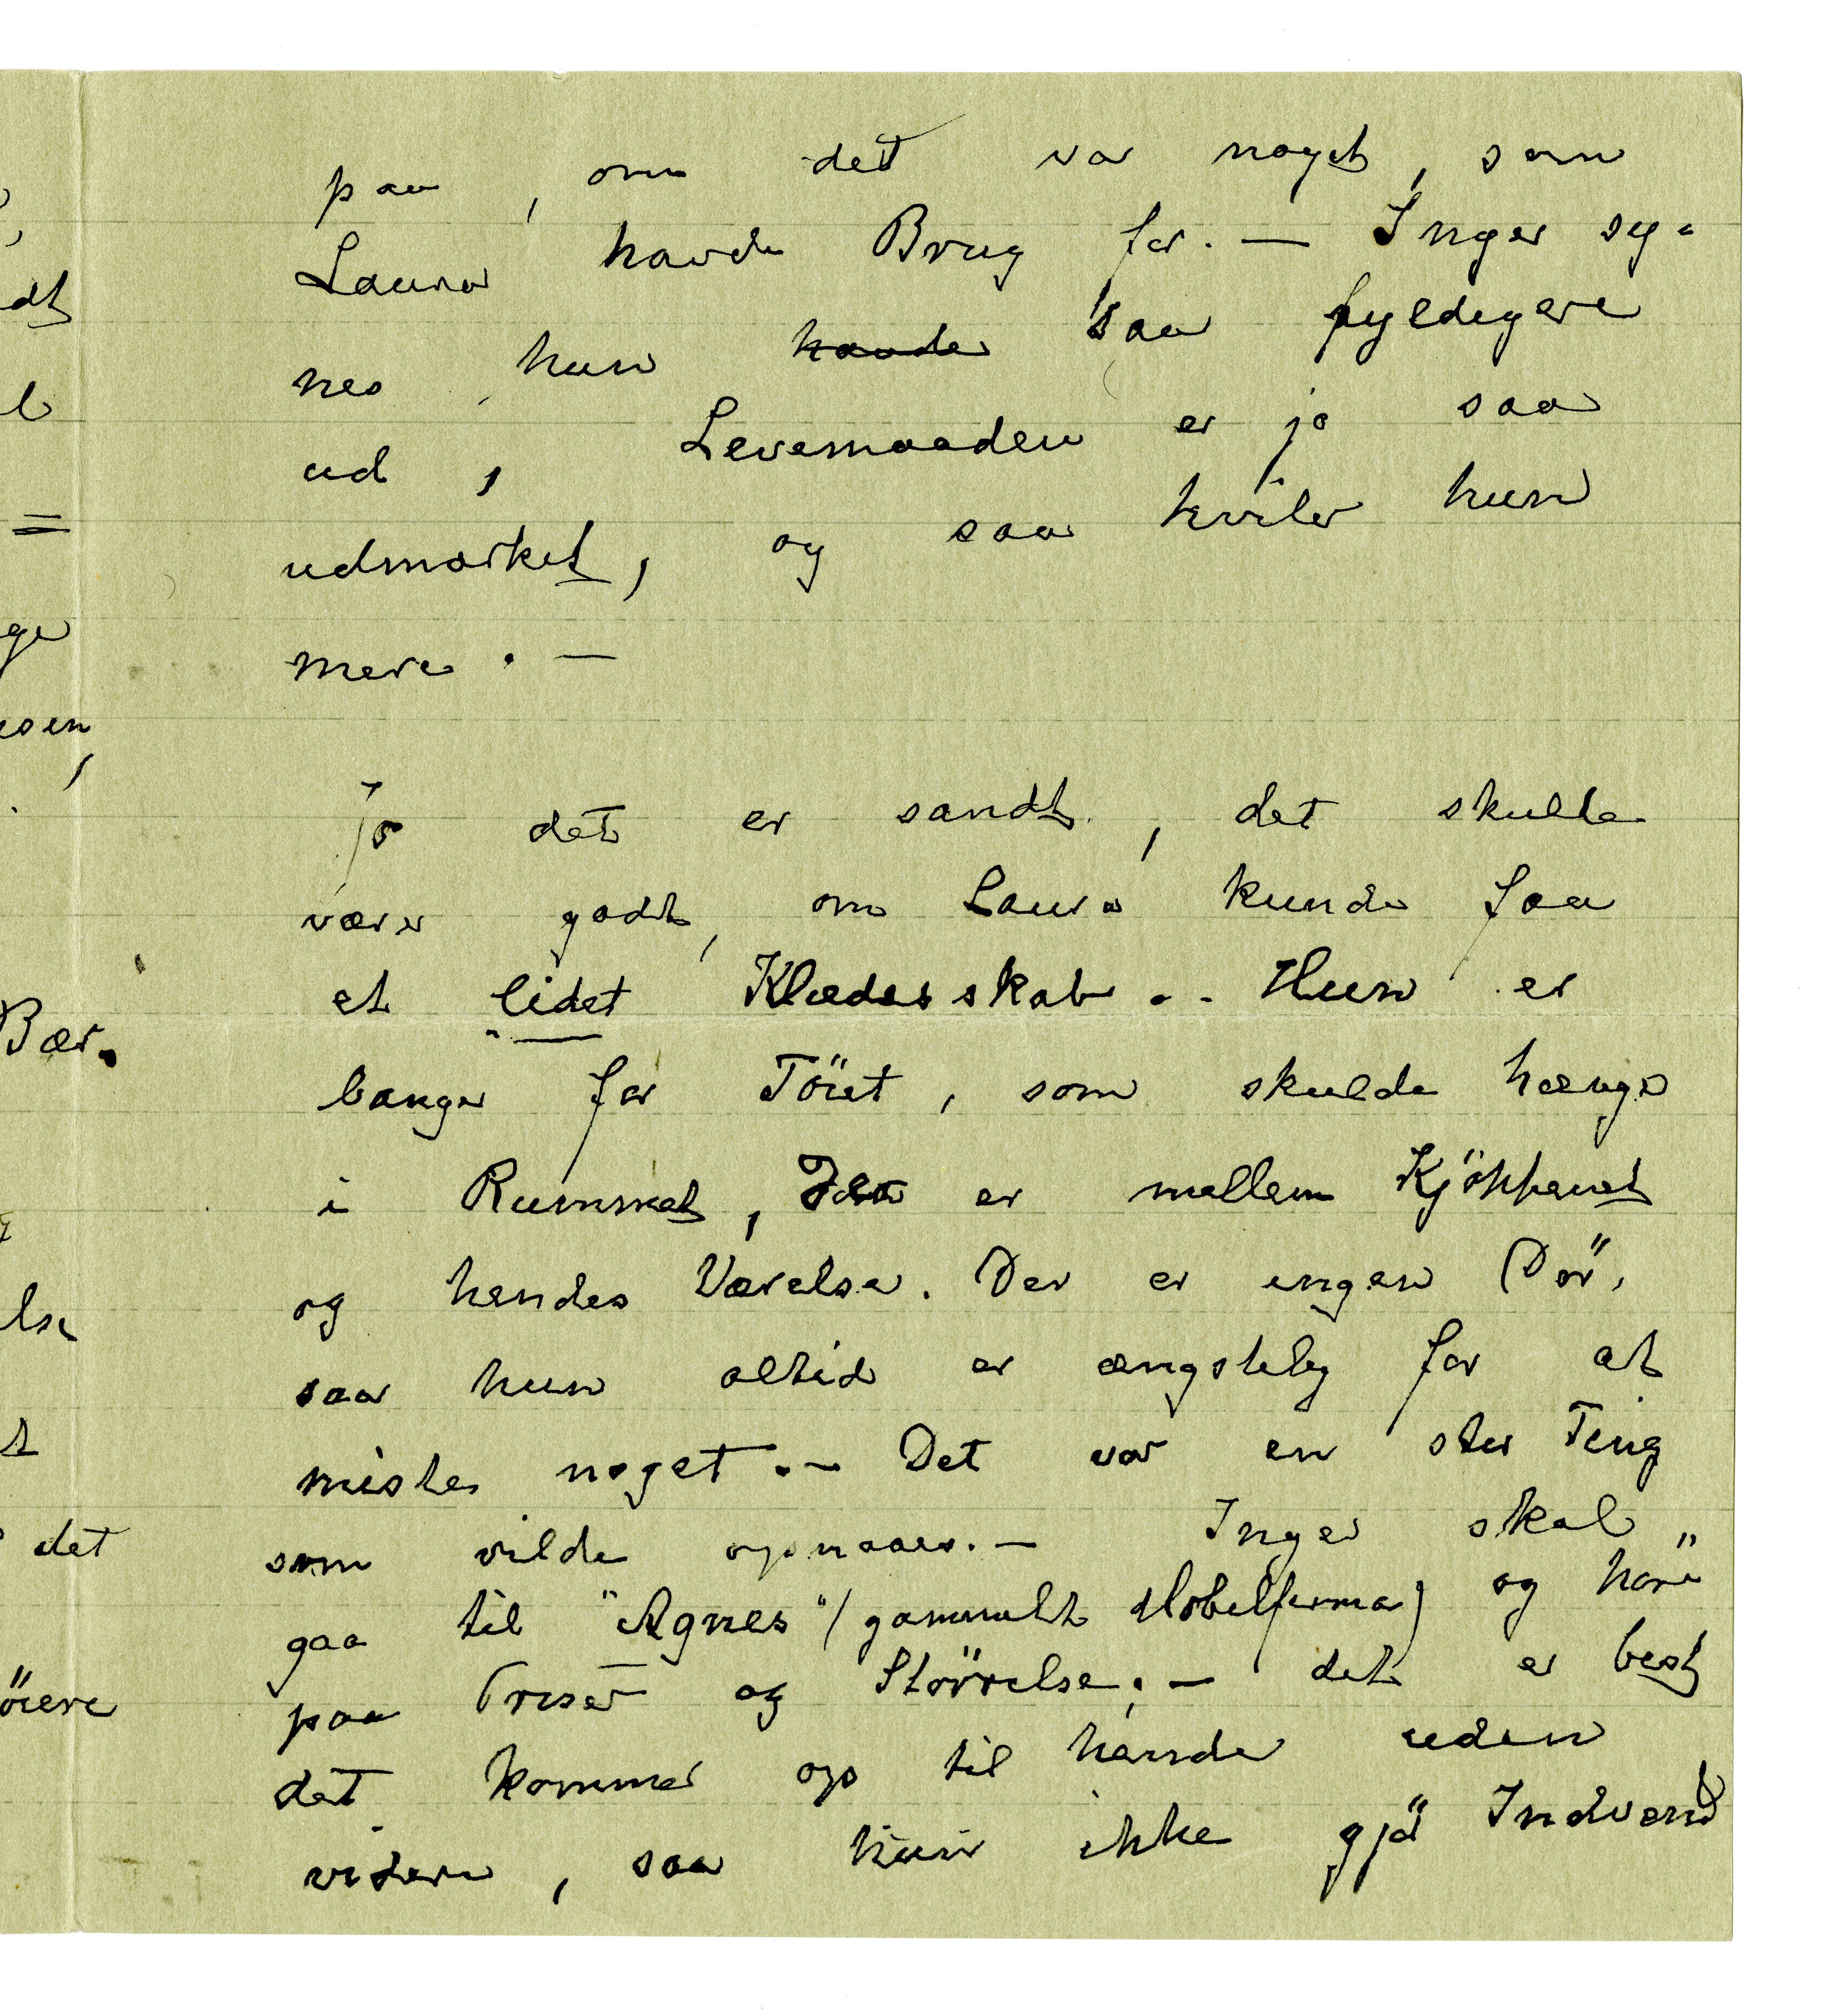 paa, om det var noget, som
Laura havde Brug for. — Inger sy-
nes, hun havde saa fyldigere
ud, Levemaaden er jo saa
udmærket, og saa hviler hun
mere. —
Jo det er sandt, det skulde
være godt, om Laura kunde faa
et lidet Klædesskab.. Hun er
bange for Töiet, som skulde hænge
i Rummet, der er mellem Kjökkenet
og hendes Værelse. Der er ingen Dör,
saa hun altid er ængstelig for at
miste noget. — Det var en stor Ting
som vilde opnaaes. — Inger skal
gaa til "Agnes" (gammelt Möbelfirma) og höre
paa Priser og Större​lse. — det er best
det kommer op til hende uden
videre, saa hun ikke gjör Indvend
dt
l
=
ge
esen,
Bær.
lse
t
det
öiere